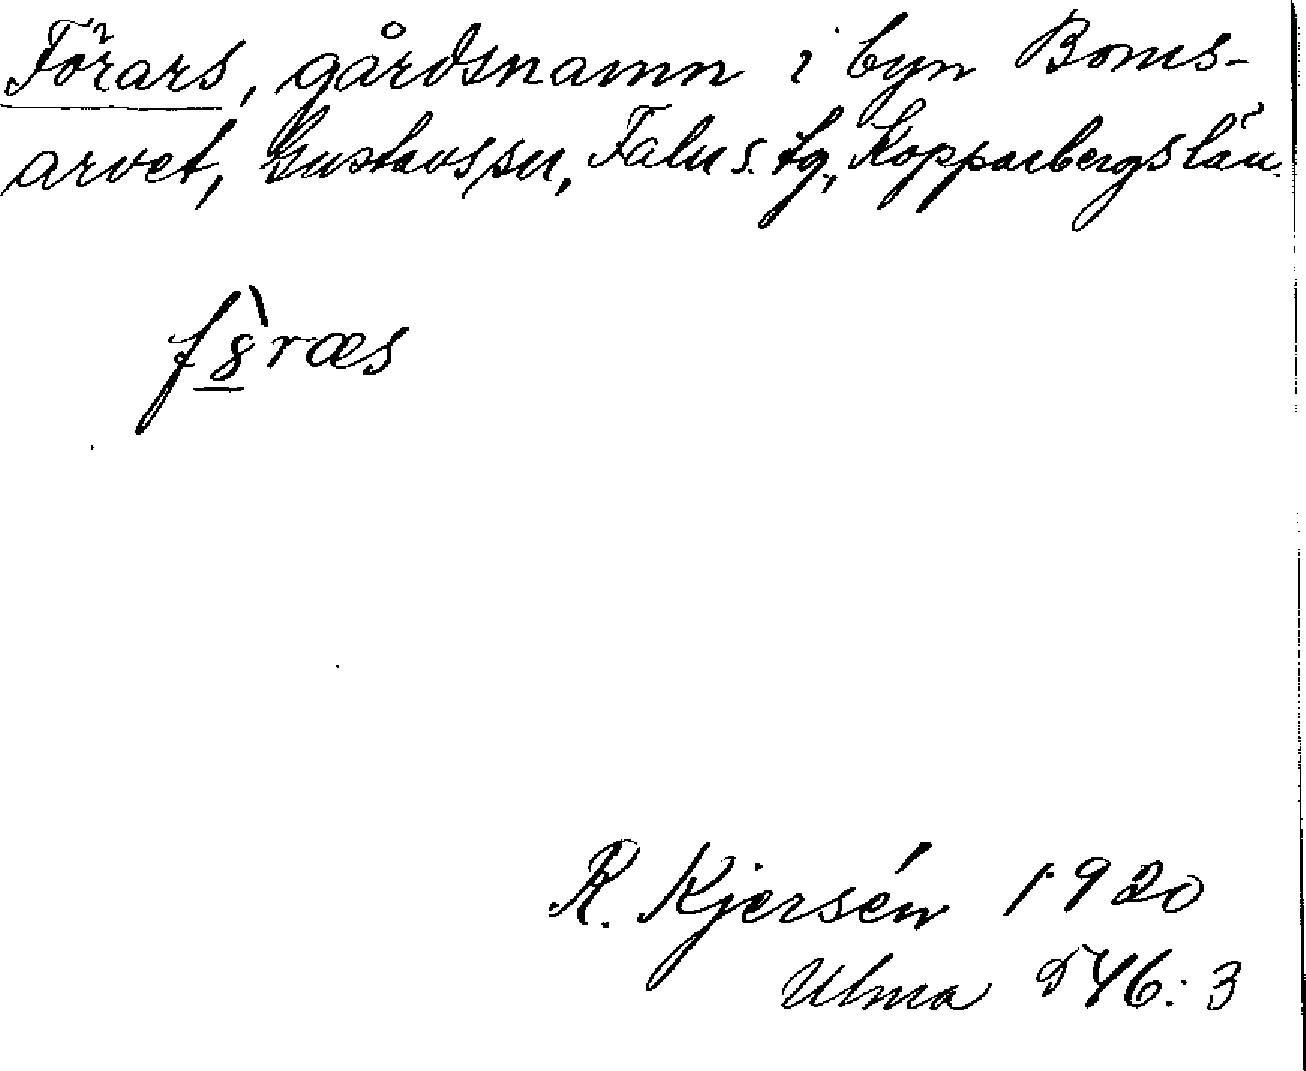 Förars, gårdsnamn i byn Boms-
arvet, Gustavs sn, Falu s. tg, Kopparbergs län.
f8̀ræs
R. Kjersén 1920
Ulma 546:3